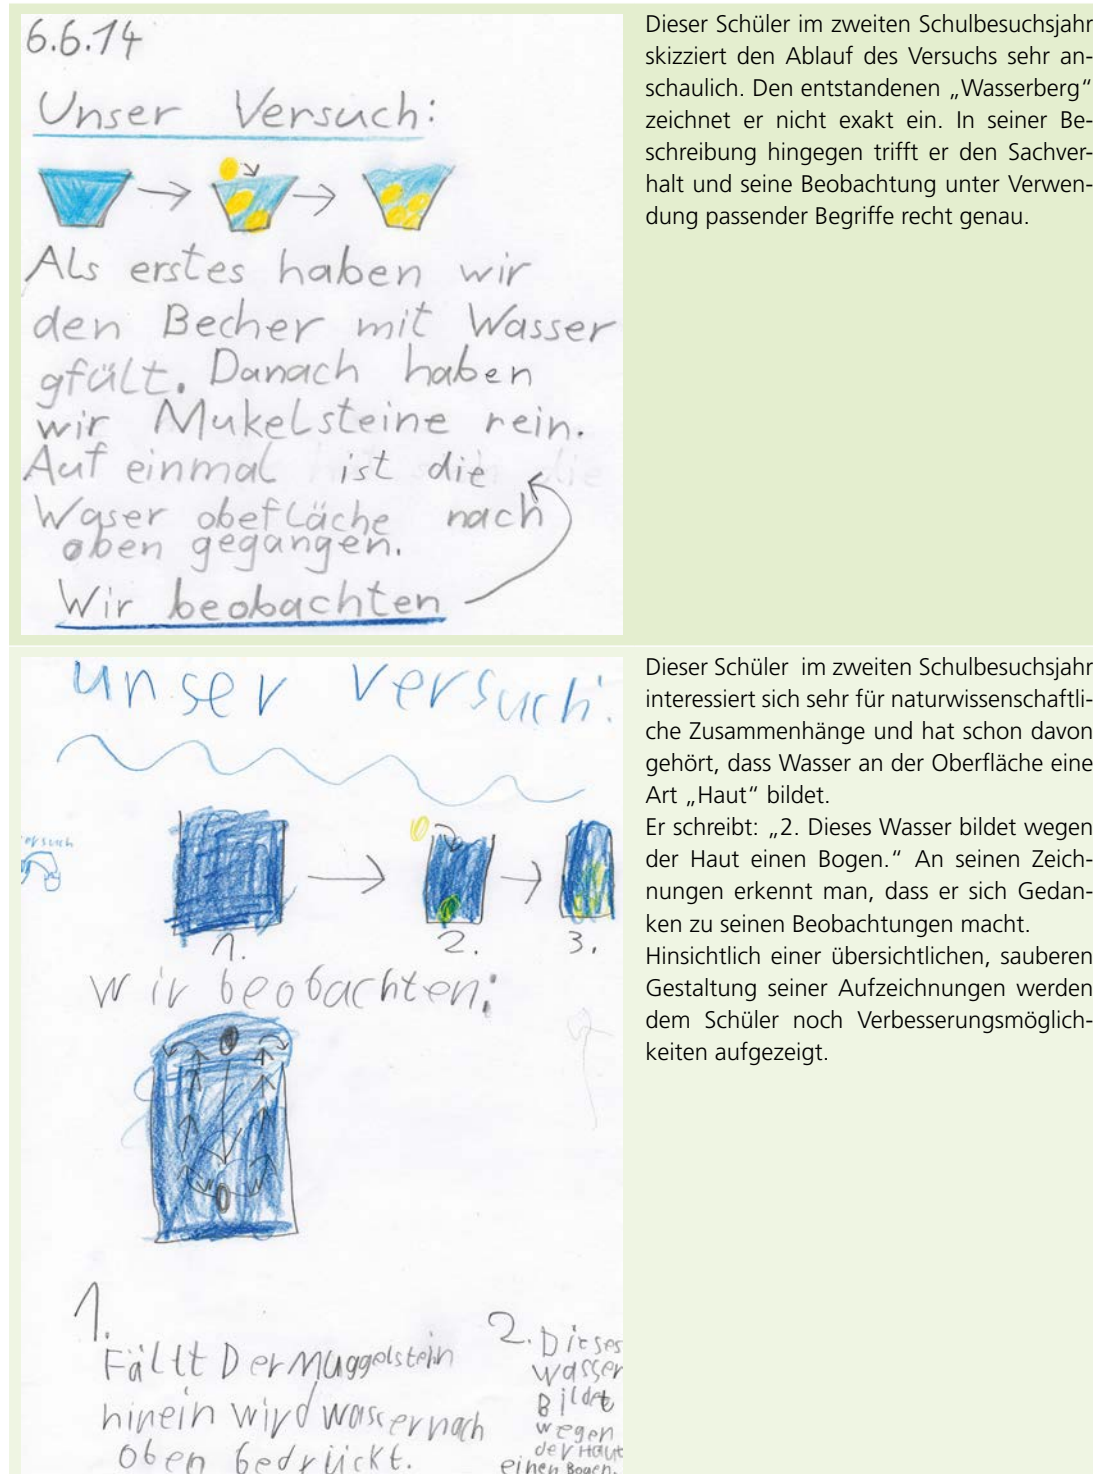 6.6.14
Unser Versuch:
Als erstes haben wir
den Becher mit Wasser
gfült. Danach haben
wir Mukelsteine rein.
Auf einmal ist die
Waser obefläche nach
oben gegangen.
Wir beobachten
Dieser Schüler im zweiten Schulbesuchsjahr
skizziert den Ablauf des Versuchs sehr an-
schaulich. Den entstandenen „Wasserberg“
zeichnet er nicht exakt ein. In seiner Be-
schreibung hingegen trifft er den Sachver-
halt und seine Beobachtung unter Verwen-
dung passender Begriffe recht genau.
unser versuch:
1.
2.
3.
wir beobachten:
1.
Fällt Der Muggelstein
hinein wird wasser nach
oben bedrückt.
2. Dieses
wasser
Bildet
wegen
der Haut
einen Bogen.
Dieser Schüler im zweiten Schulbesuchsjahr
interessiert sich sehr für naturwissenschaftli-
che Zusammenhänge und hat schon davon
gehört, dass Wasser an der Oberfläche eine
Art „Haut“ bildet.
Er schreibt: „2. Dieses Wasser bildet wegen
der Haut einen Bogen.“ An seinen Zeich-
nungen erkennt man, dass er sich Gedan-
ken zu seinen Beobachtungen macht.
Hinsichtlich einer übersichtlichen, sauberen
Gestaltung seiner Aufzeichnungen werden
dem Schüler noch Verbesserungsmöglich-
keiten aufgezeigt.